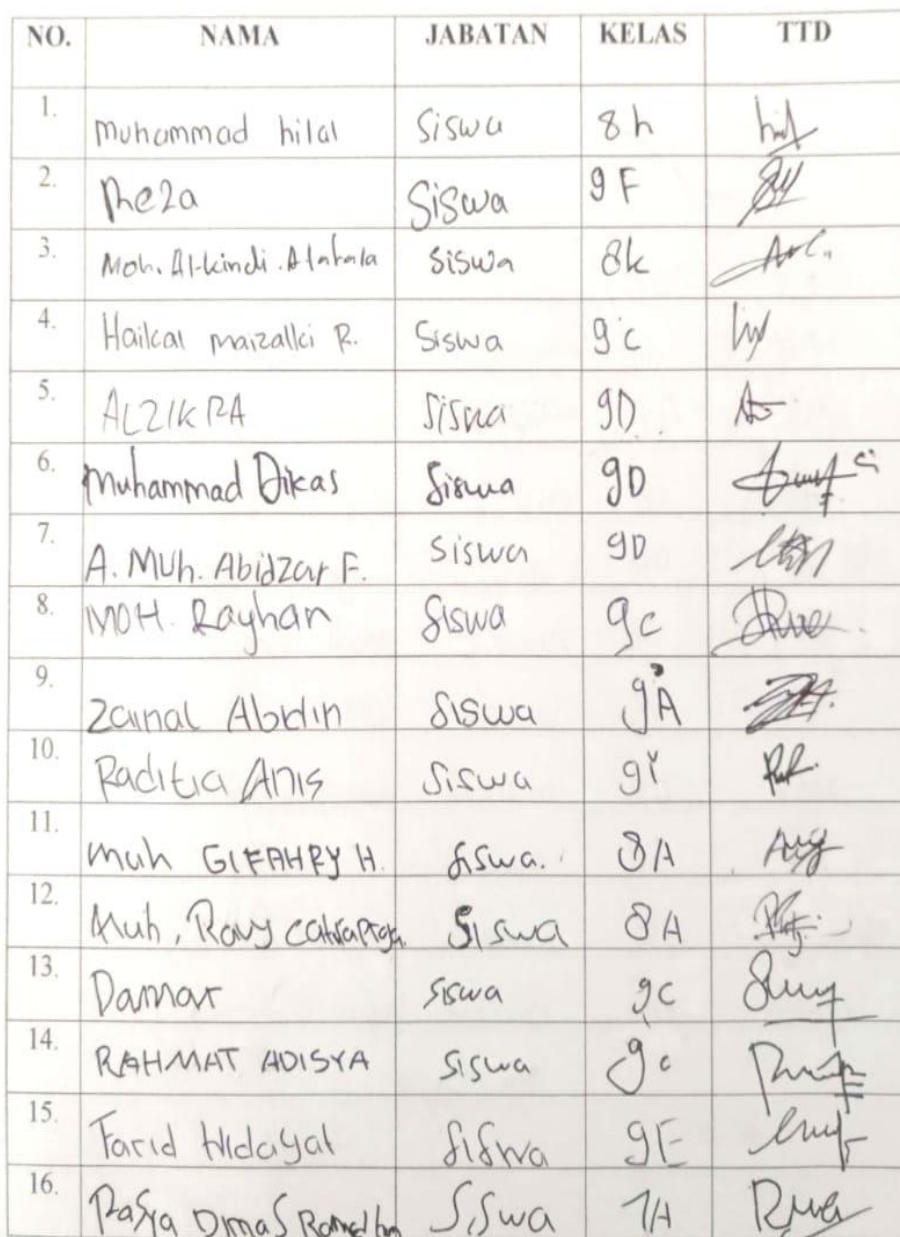 NO. NAMA JABATAN KELAS TTD
1. Muhammad hilal Siswa 8h
2. Reza Siswa 9F
3. Moh. Al-kindi. Alatala Siswa 8k
4. Haikal maizalki R. Siswa 9c
5. ALZIKRA Siswa 9D
6. Muhammad Dikas Siswa 9D
7. A. Muh. Abidzar F. Siswa 9D
8. MOH. Rayhan Siswa 9c
9. Zainal Abidin Siswa 9A
10. Raditia Anis Siswa
11. Muh GIFAHRY H. Siswa. 8A
12. Muh, Ravy Siswa 8A
13. Damar siswa 9c
14. RAHMAT ADISYA Siswa 9c
15. Farid Hidayat Siswa 9E
16. Rasya Dimas Siswa 7A